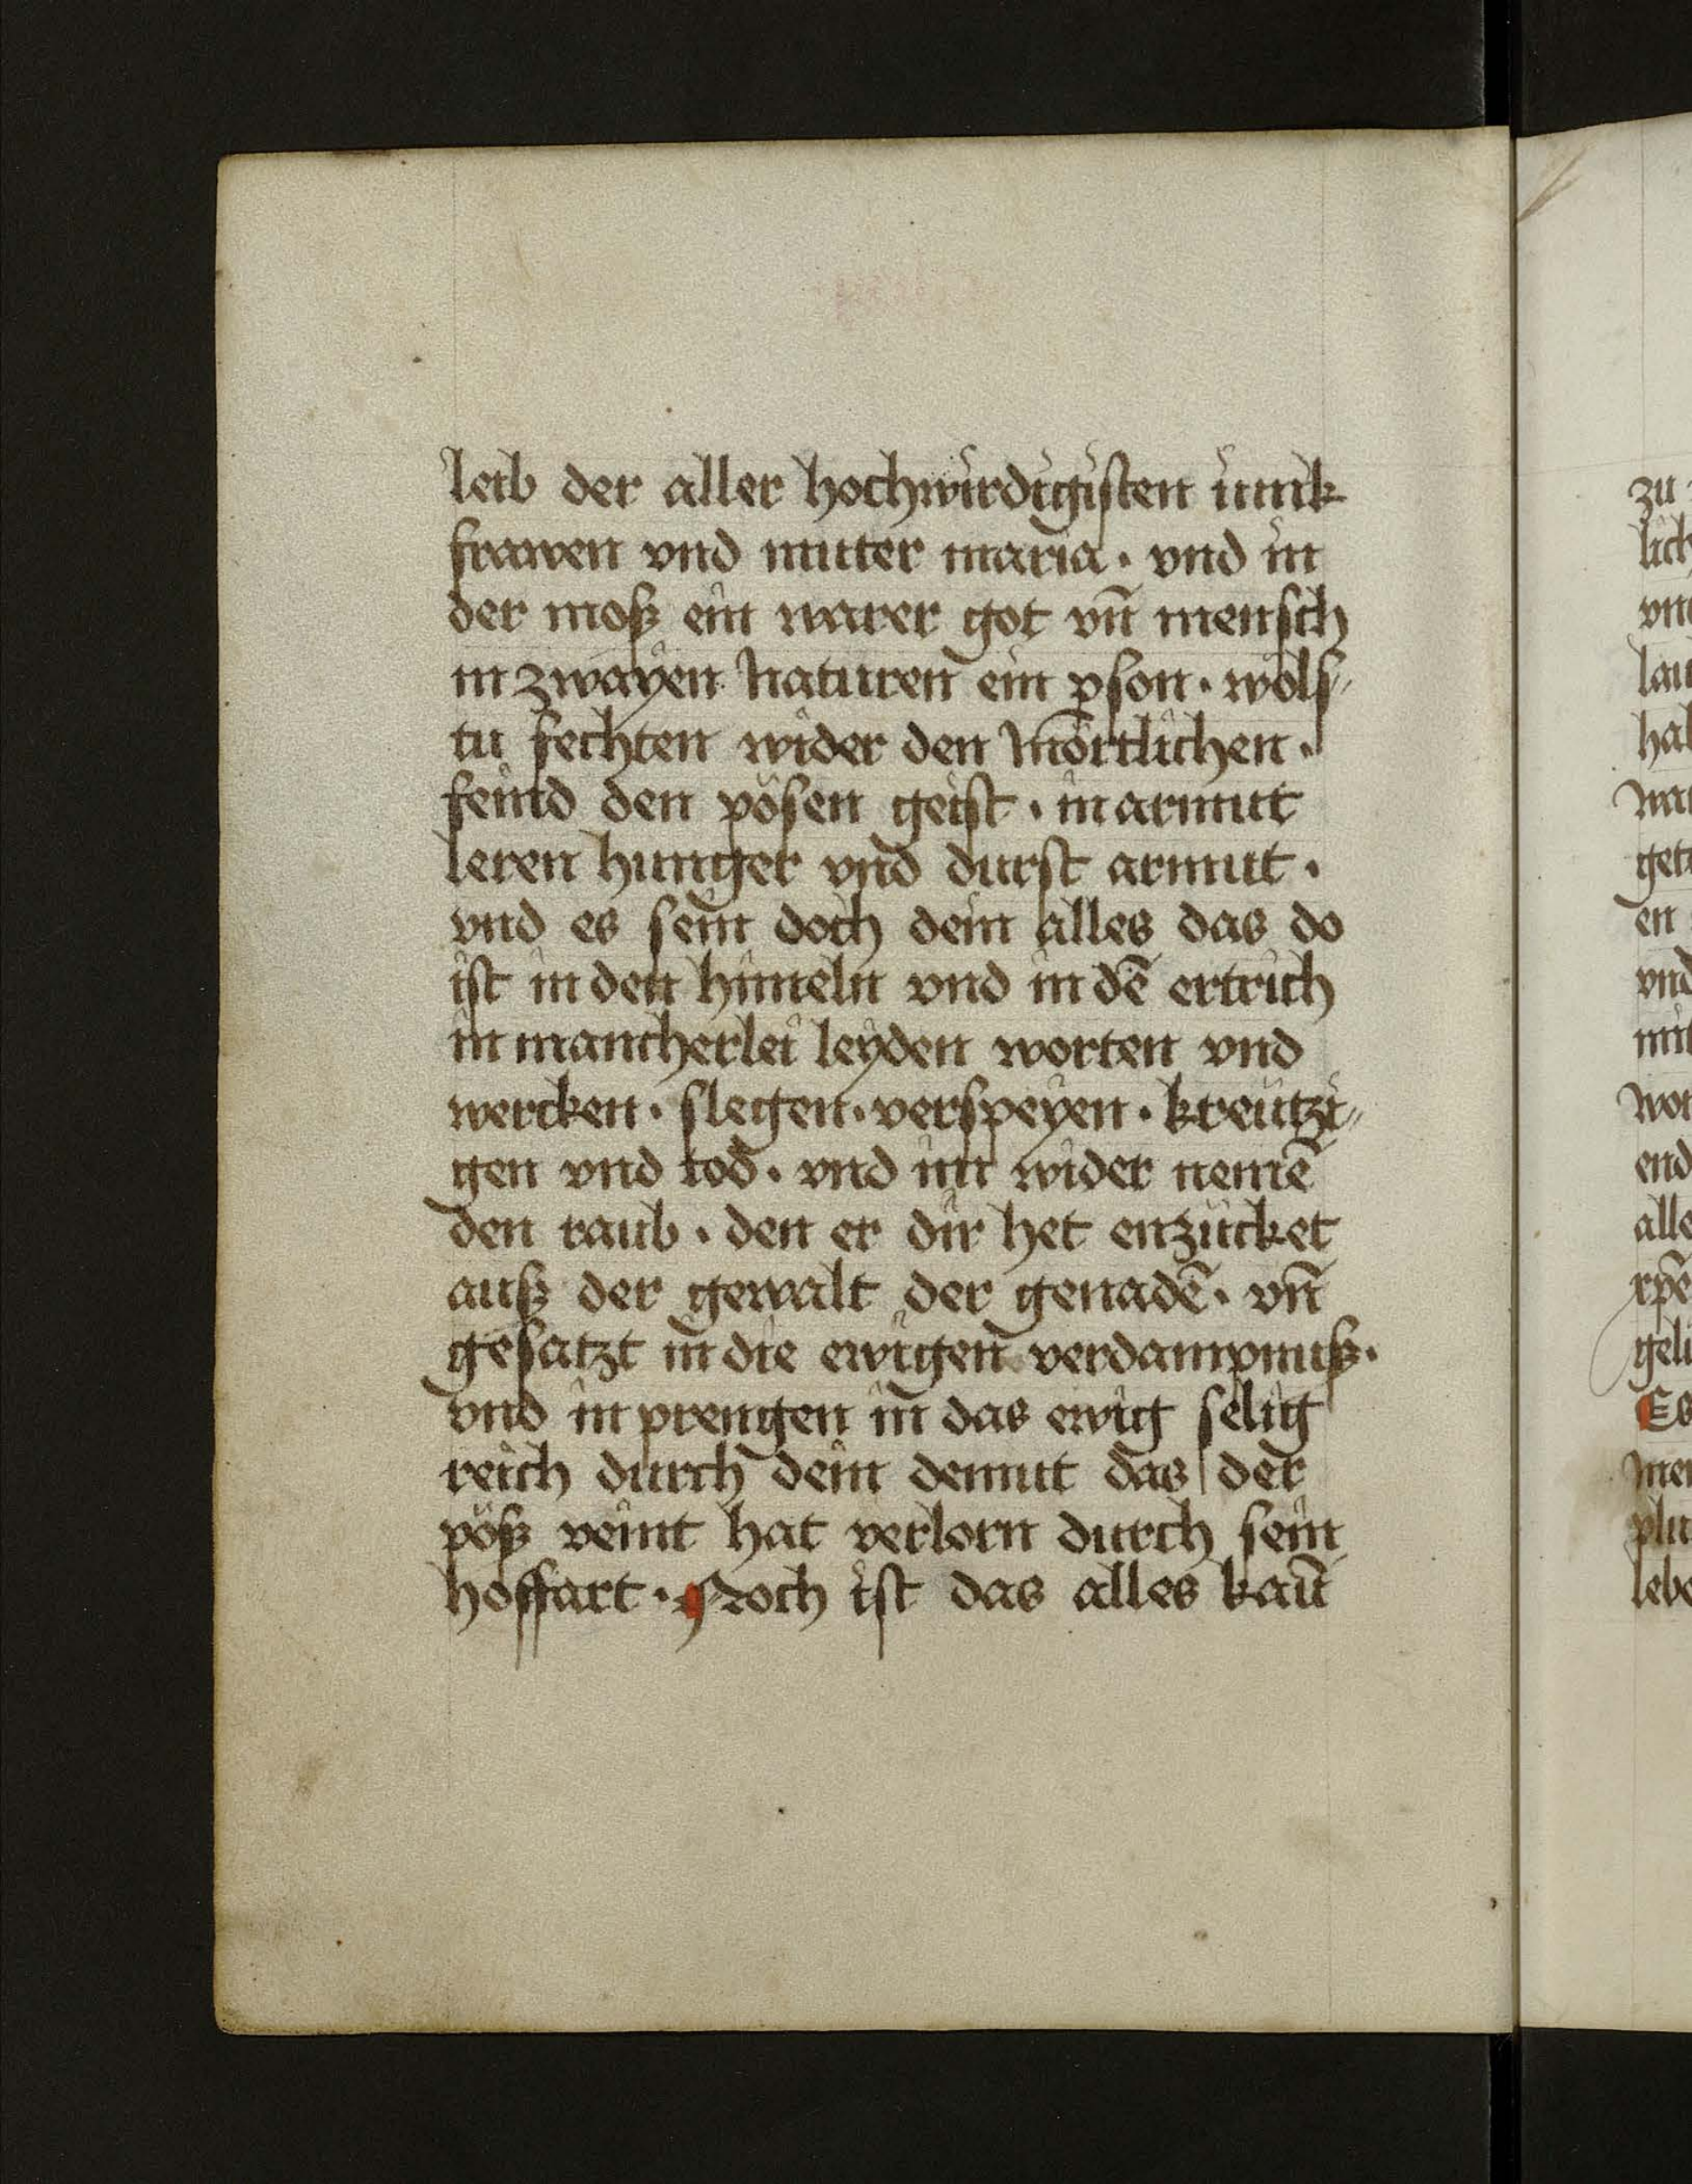 leib der aller hochwirdigisten iunk
frawen vnd muter maria · vnd in
der moß ein warer got vn̄ mensch
in zwayen naturen ein ꝑson · wols⸗
tu fechten wider den mörtlichen ·
feind den pösen geist · in armut
leren hunger vnd durst armut ·
vnd es sein doch dein alles das do
ist in den himeln vnd in dē ertrich
in mancherlei leyden worten vnd
wercken · slegen · verspeyen · kreutzi⸗
gen vnd tod · vnd im wider nemē
den raub · den er dir het enzücket
auß der gewalt der genadē · vn̄
gesatzt in die ewigen verdampnuß ·
vnd in prengen in das ewig selig
reich durch dein demut das der
pöß veint hat verlorn durch sein
hoffart · Noch ist das alles kaū
zu
lich
vn
lau
hal
get
en
vnd
mit
wor
end
alle
xpē
geli
Es
men
plu
lebe